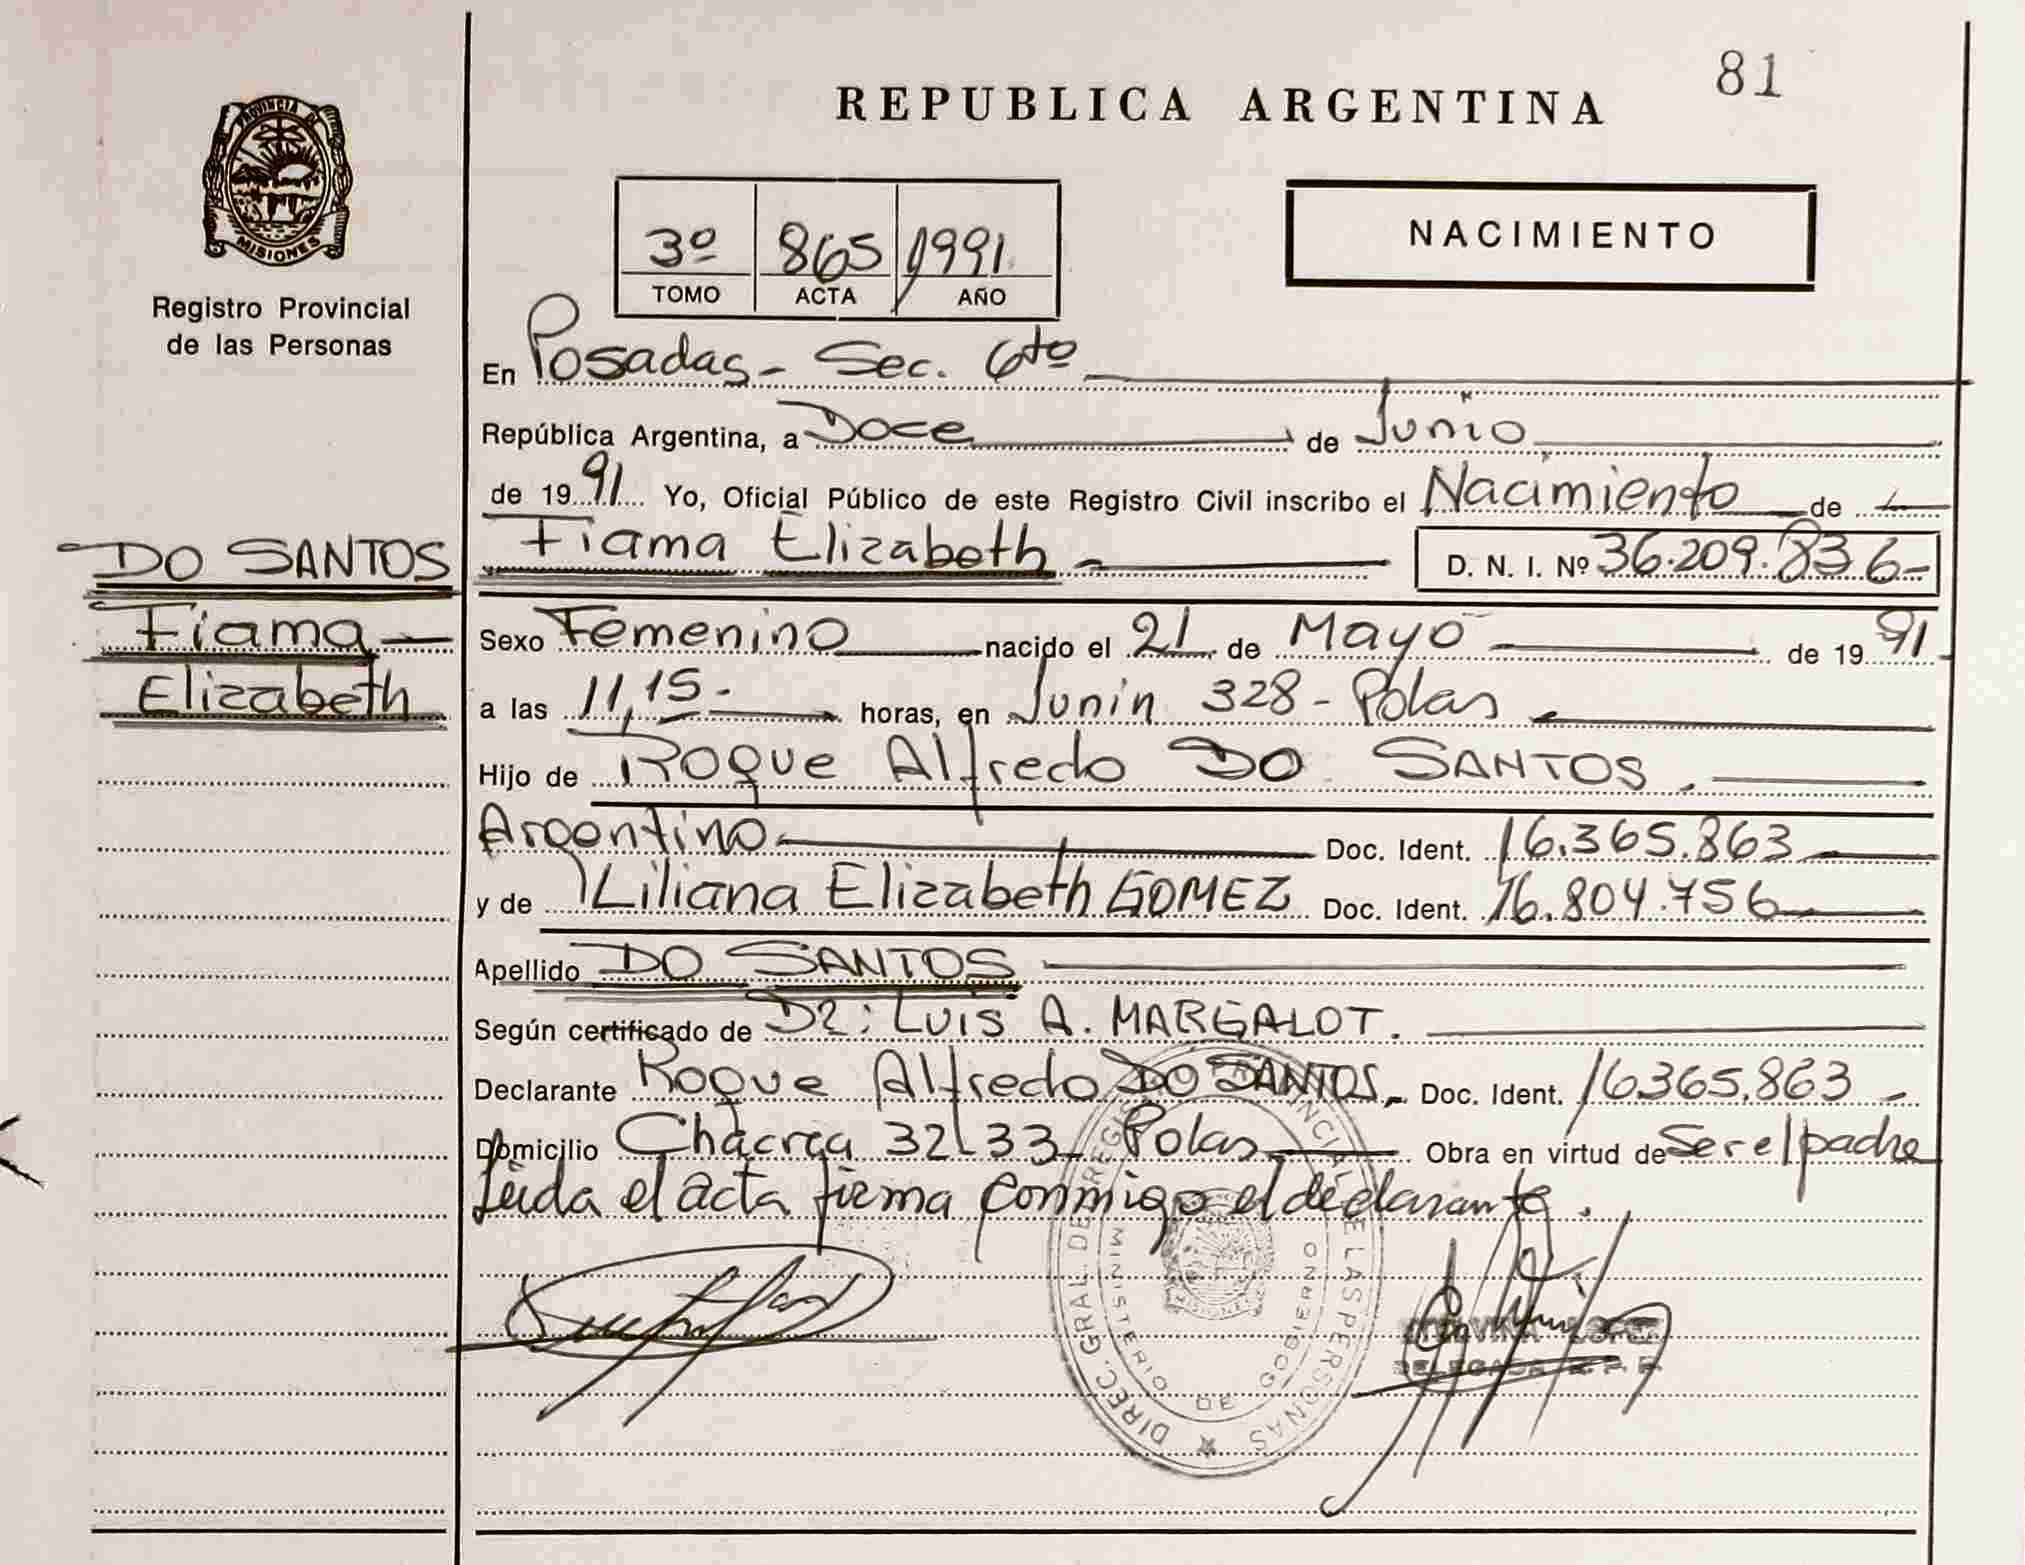 81
REPUBLICA ARGENTINA
PROVINCIA DE
MISIONES
Registro Provincial
de las Personas
3º 865 1991
TOMO ACTA AÑO
NACIMIENTO
En Posadas - Sec. 6to
República Argentina, a Doce de Junio
de 1991 Yo, Oficial Público de este Registro Civil inscribo el Nacimiento de
Fiama Elizabeth D. N. I. Nº 36.209.836-
DO SANTOS
Fiama
Elizabeth
Sexo Femenino nacido el 21 de Mayo de 1991
a las 11,15.- horas, en Junin 328 - Pdas
Hijo de Roque Alfredo DO SANTOS.
Argentino Doc. Ident. 16.365.863
y de Liliana Elizabeth GOMEZ Doc. Ident. 16.804.756
Apellido DO SANTOS
Según certificado de Dr: LUIS A. MARGALOT.
Declarante Roque Alfredo DO SANTOS- Doc. Ident. 16365.863-
Domicilio Chacra 32 33 Pdas Obra en virtud de Ser el padre
Leida el acta firma conmigo el declarante.
DIREC. GRAL DE REGISTRO PROVINCIAL DE LAS PERSONAS
MINISTERIO DE GOBIERNO
MISIONES
LOPEZ
DELEGADA R. P. P.